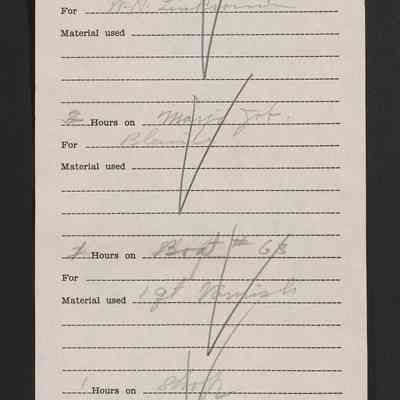 For
Material used
2 Hours on Mario Job.
For
Material used
Hours on Boat # 68
For
Material used 1 qt Varnish
1 Hours on